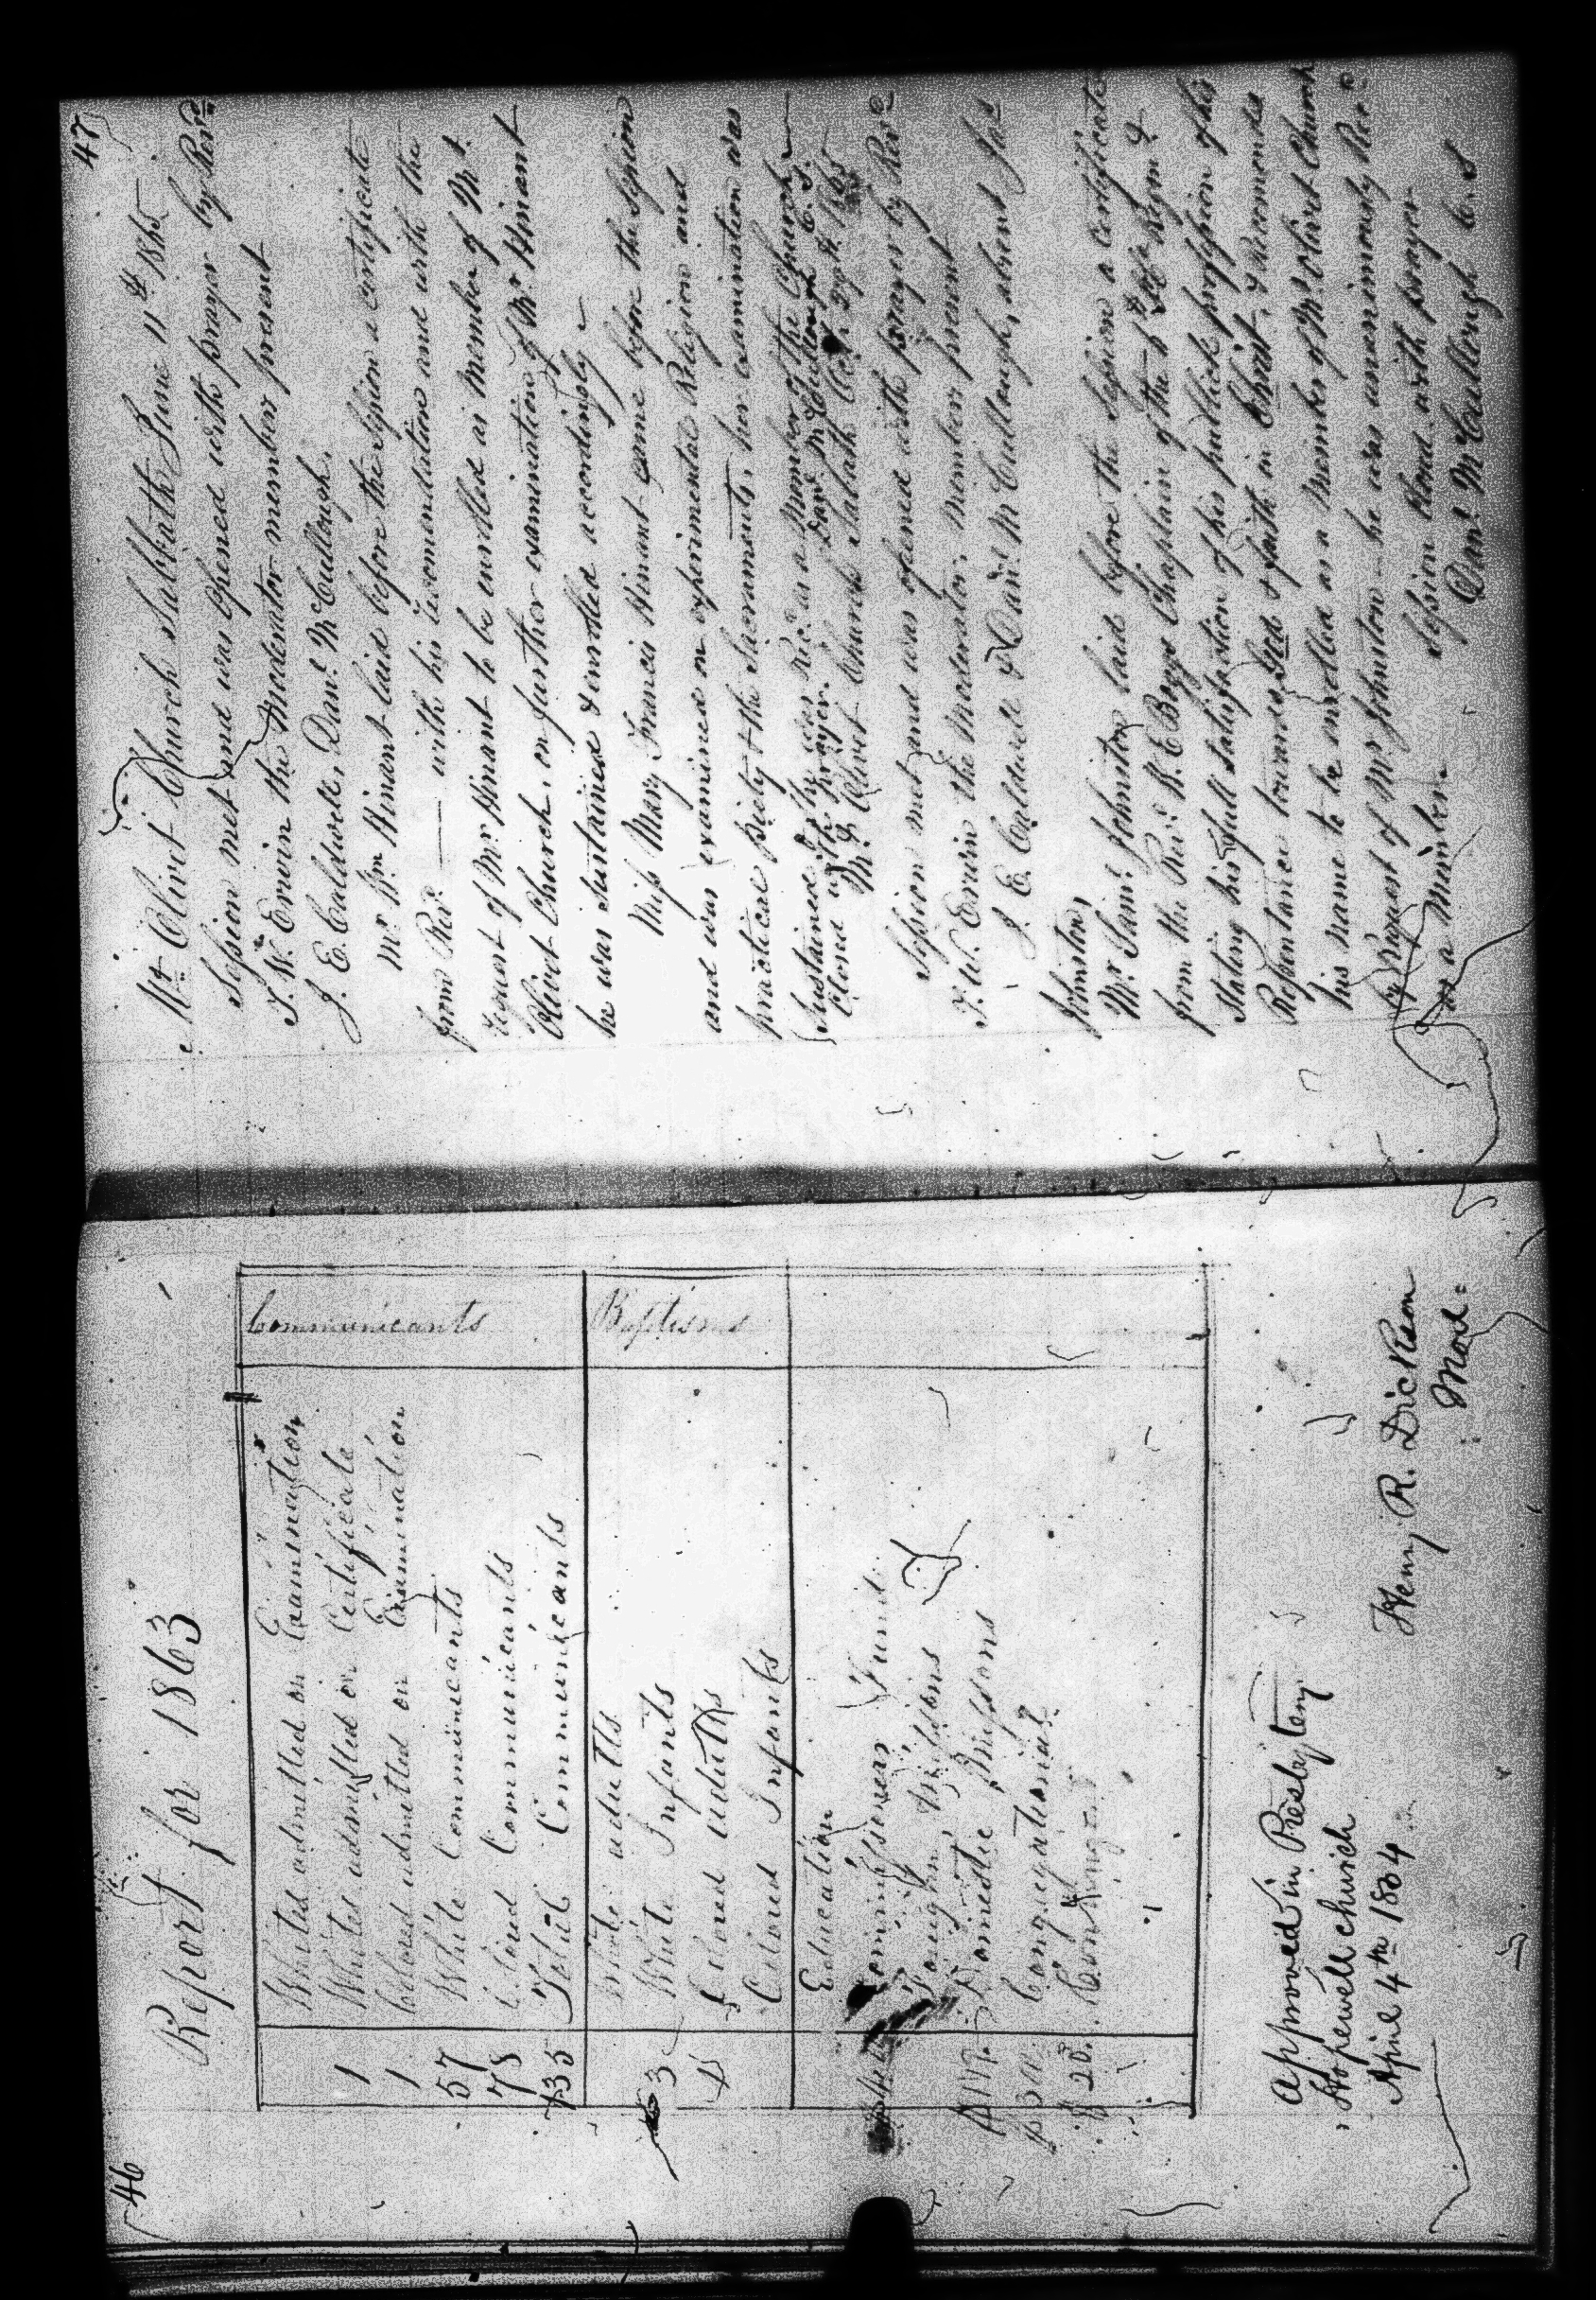 46
Report for 1863
Communicants
Whites admitted on Examination
1 Whites admitted on Certificate
1 Colored admitted on Examination
57 White Communicants
78 Colored Communicants
135 Total Communicants
Baptisms
White adults
3 White Infants
Colored adults
Colored Infants
Education
Commissioners Fund
Foreign Missions
Domestic Missions
Congregational
20. Contingent
Approved in Presbytery
Hopewell church
April 4th 1864
Henry R. Dickson
Mod.
47
Mt Olivet Church Sabbath June 11th 1865.
Session met and was opened with prayer by Revd
T. W. Erwin the Moderator members present
J. E. Caldwell, Danl McCullough.
Mr Wm Hinant laid before the session a certificate
from Revd —— with his recomendation and with the
request of Mr Hinant to be enrolled as member of Mt.
Olivet Church, on further examination of Mr Hinant
he was Sustained & enrolled accordingly
Miss Mary Francis Hinant came before the Session
and was examined on experimental Religion and
practical Piety & the Sacraments, her examination was
Sustained & she was Recd as a Member of the Church
Closed with prayer. Danl McCullough C. S.
Mt Olivet Church Sabath 1865
Session met and was opened with prayer by Revd
T. W. Erwin the Moderator, Members present
J. E. Caldwell & Danl McCullough, absent Jas
Johnston,
Mr Saml Johnston laid before the Session a Certificate
from the Revd Chaplain of the 5th
Stating his full satisfaction of his publick profession of his
Repentance towards God & faith in Christ, & Recomends
his name to be enrolled as a Member of Mt Olivet Church
by Request of Mr Johnston he was unanimously Recd
as a Member. Session closed with prayer
Danl McCullough C. S